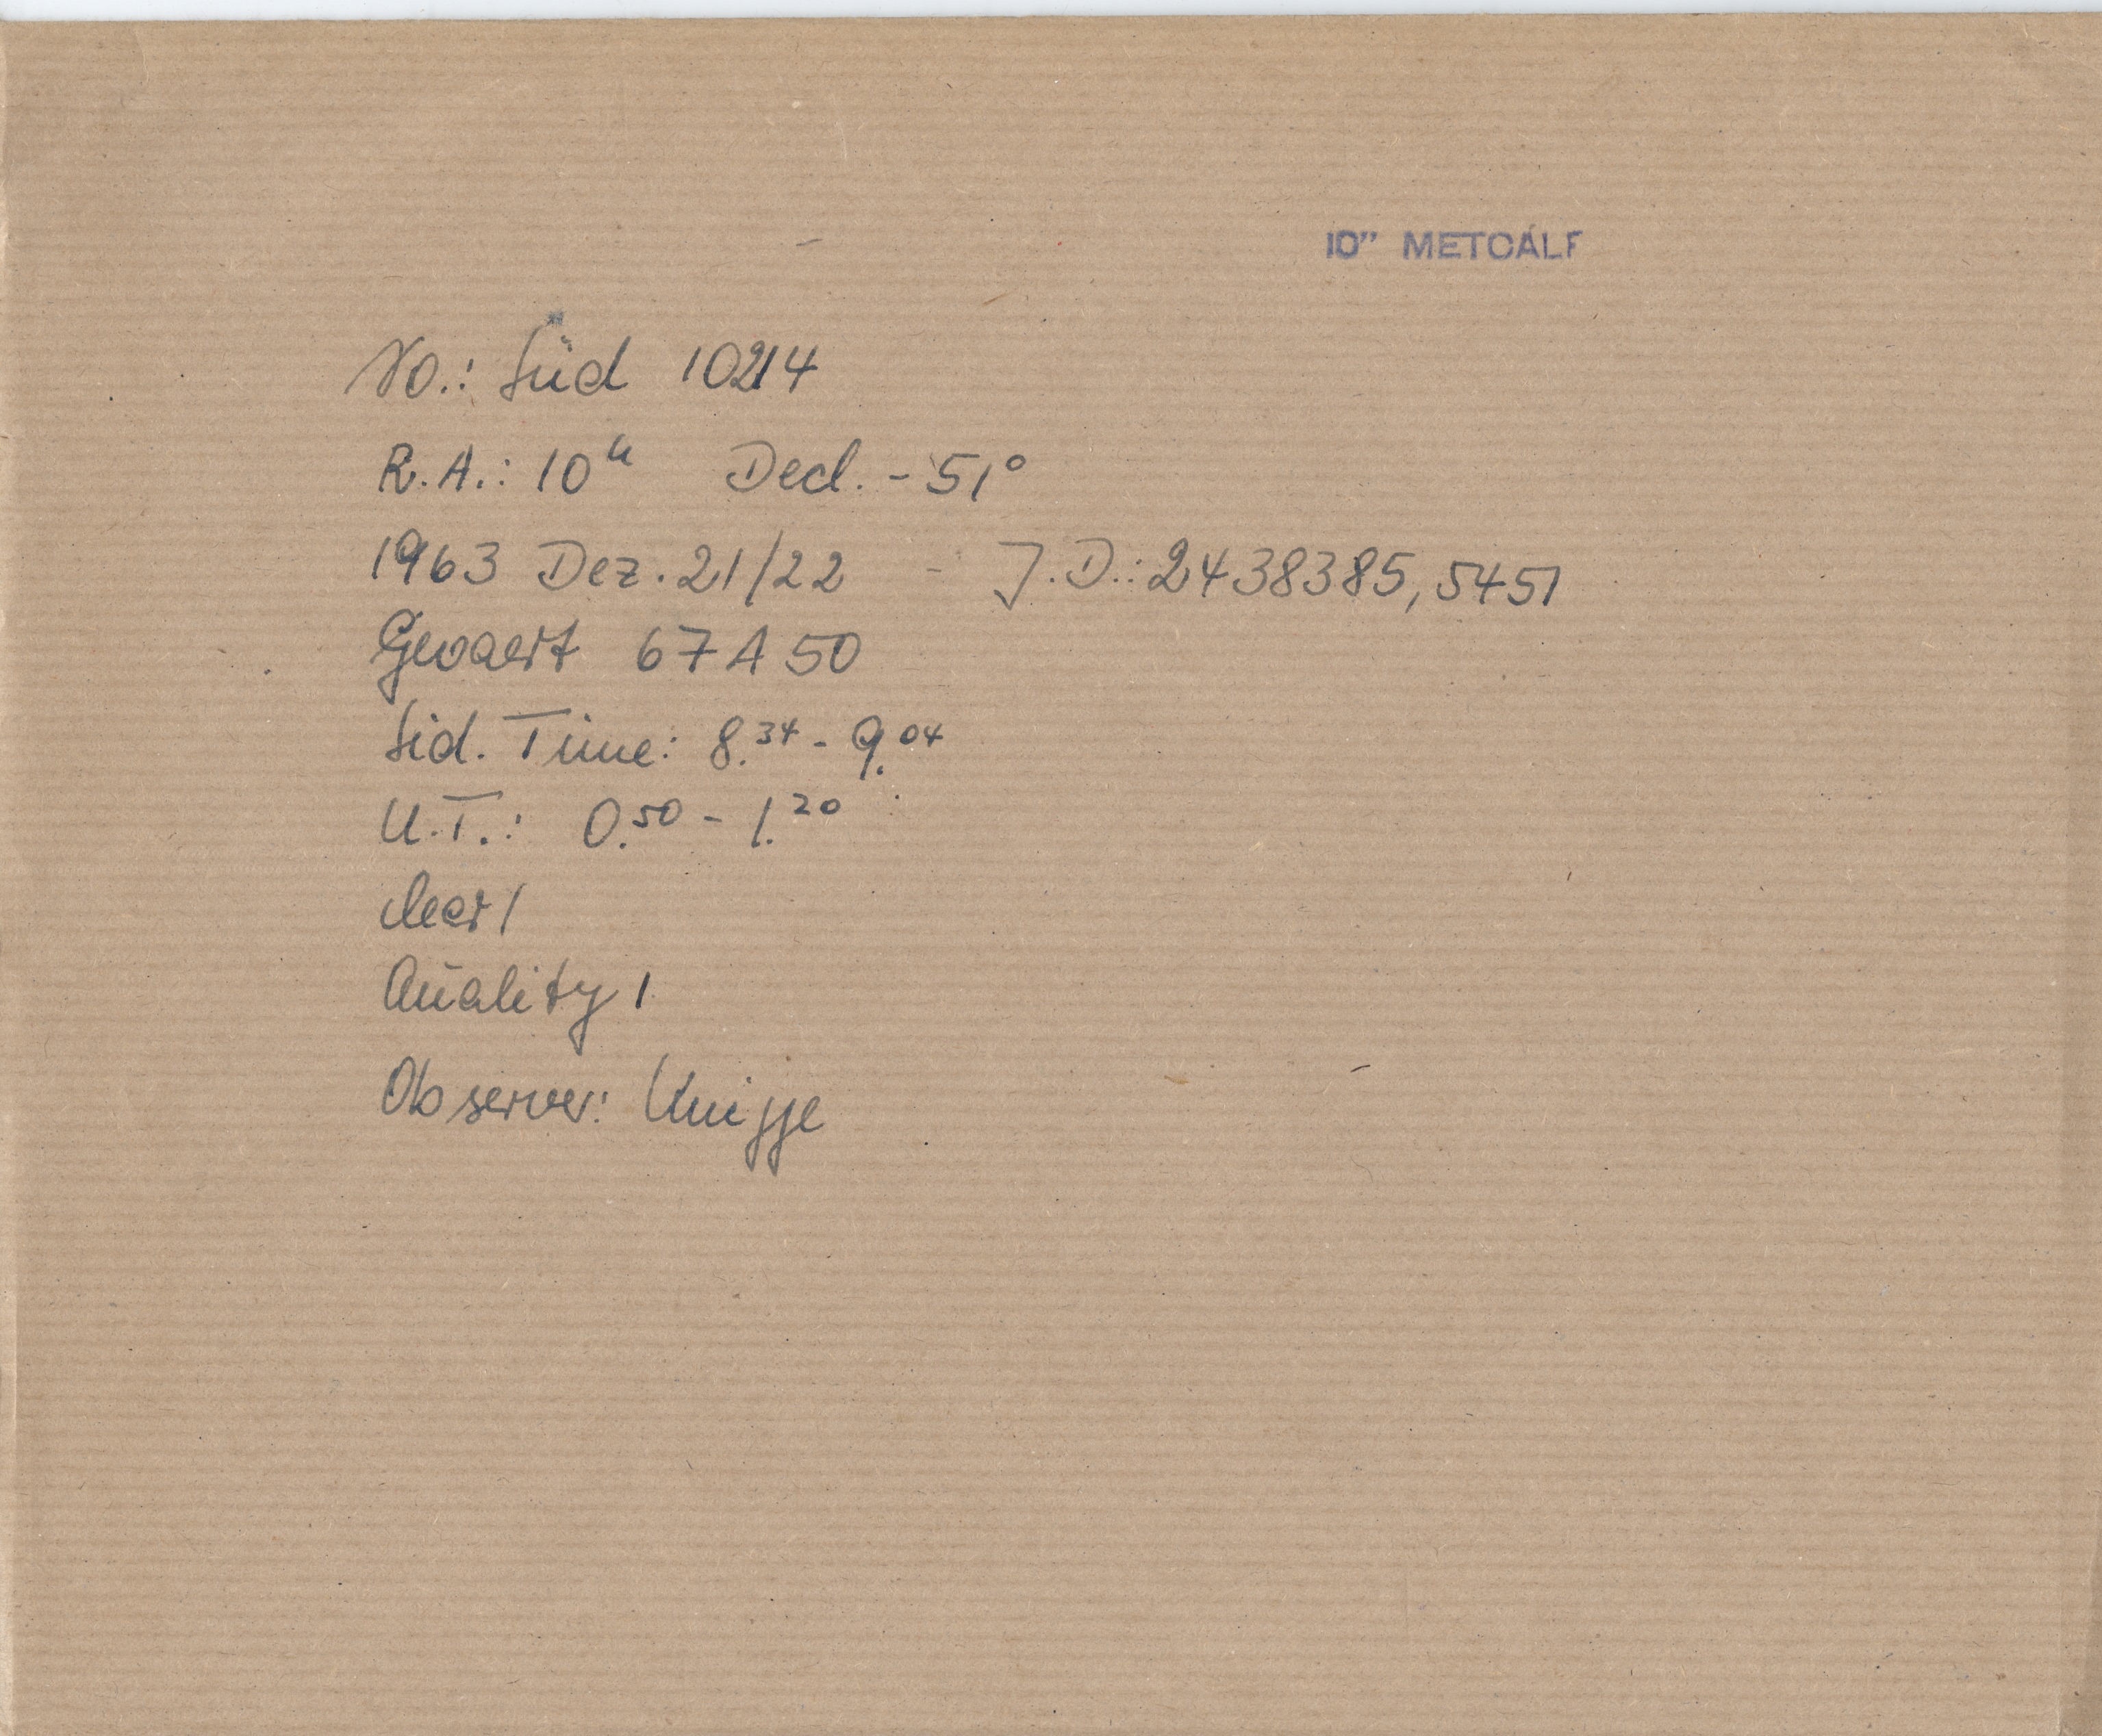 10" METCALF
No.: Süd 10214
R.A.: 10h Decl. - 51°
1963 Dez. 21/22 - J.D.: 2438385,5451
Gevaert 67 A 50
Sid. Time: 8.34 - 9.04
U.T.: 0.50 - 1.20
clear 1
Quality 1
Observer: Knigge